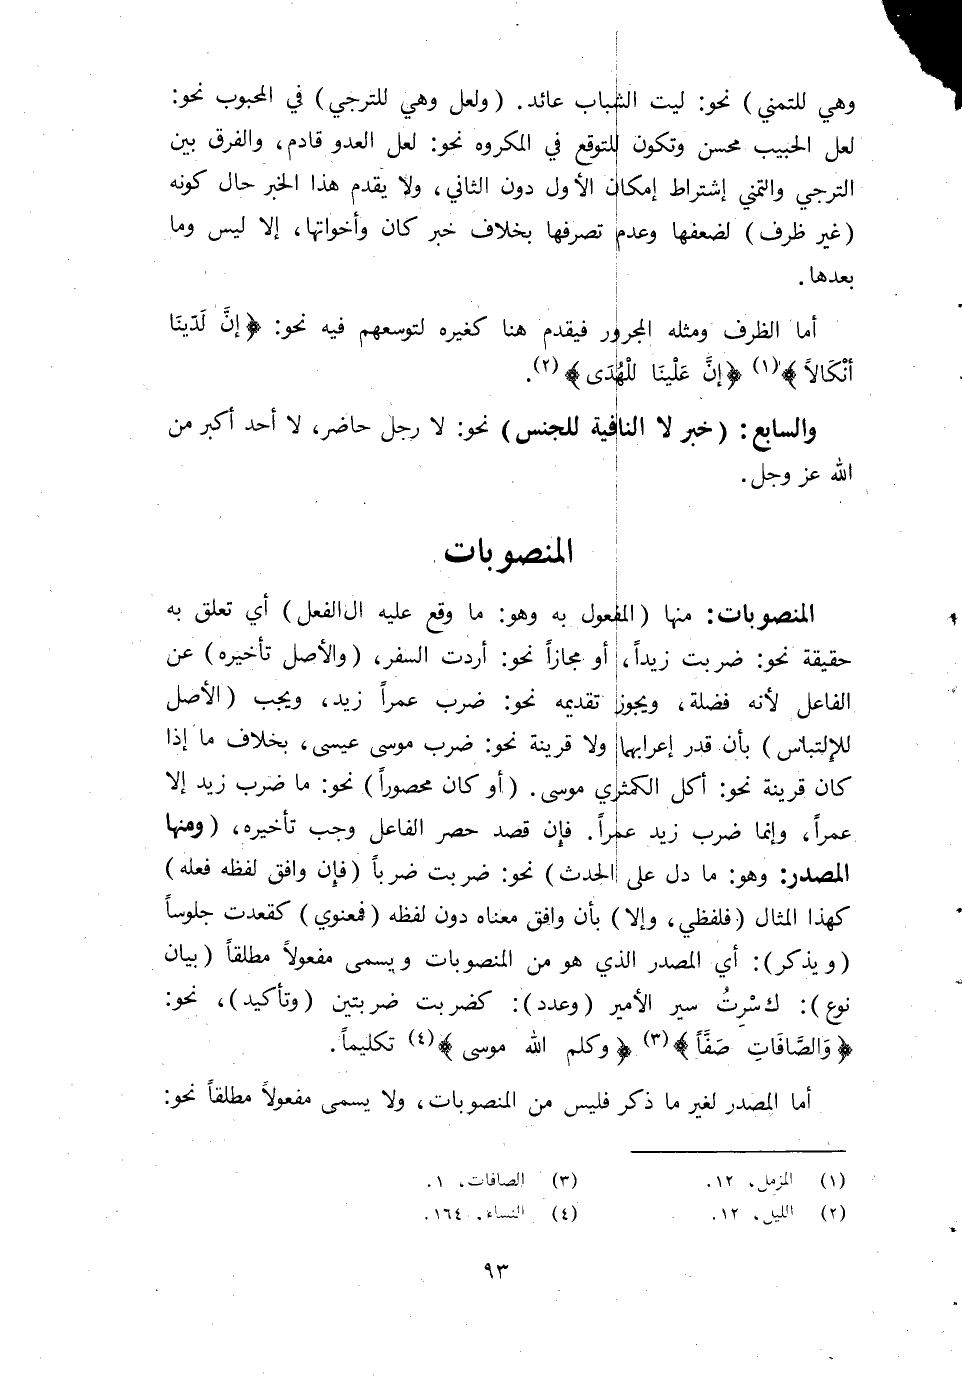 وهي للتمني) نحو: ليت الشباب عائد. (ولعل وهي للترجي) في المحبوب نحو:
لعل الحبيب محسن وتكون للتوقع في المكروه نحو: لعل العدو قادم، والفرق بين
الترجي والتمني إشتراط إمكان الأول دون الثاني، ولا يقدم هذا الخبر حال كونه
(غير ظرف) لضعفها وعدم تصرفها بخلاف خبر كان وأخواتها، إلا ليس وما
بعدها.
أما الظرف ومثله المجرور فيقدم هنا كغيره لتوسعهم فيه نحو: ﴿إنَّ لَدَينَا
أنْكَالاً﴾(١) ﴿إنَّ عَلْينَا للْهُدَى﴾(٢).
والسابع: (خبر لا النافية للجنس) نحو: لا رجل حاضر، لا أحد أكبر من
الله عز وجل.
المنصوبات
المنصوبات: منها (المفعول به وهو: ما وقع عليه ال الفعل) أي تعلق به
حقيقة نحو: ضربت زيداً، أو مجازاً نحو: أردت السفر، (والأصل تأخيره) عن
الفاعل لأنه فضلة، ويجوز تقديمه نحو: ضرب عمراً زيد، ويجب (الأصل
للإلتباس) بأن قدر إعرابها ولا قرينة نحو: ضرب موسى عيسى، بخلاف ما إذا
كان قرينة نحو: أكل الكمثري موسى. (أو كان محصوراً) نحو: ما ضرب زيد إلا
عمراً، وإنما ضرب زيد عمراً. فإن قصد حصر الفاعل وجب تأخيره، (ومنها
المصدر: وهو: ما دل على الحدث) نحو: ضربت ضرباً (فإن وافق لفظه فعله)
كهذا المثال (فلفظي، وإلا) بأن وافق معناه دون لفظه (فمعنوي) كقعدت جلوساً
(ويذكر): أي المصدر الذي هو من المنصوبات ويسمى مفعولاً مطلقاً (بيان
نوع): كسْرِتُ سير الأمير (وعدد): كضربت ضربتين (وتأكيد)، نحو:
﴿وَالصَّافَاتِ صَفَّاً﴾(٣) ﴿وكلم الله موسى﴾(٤) تكليماً.
أما المصدر لغير ما ذكر فليس من المنصوبات، ولا يسمى مفعولاً مطلقاً نحو:
(١) المزمل، ١٢.
(٢) الليل، ١٢.
(٣) الصافات، ١.
(٤) النساء، ١٦٤.
٩٣